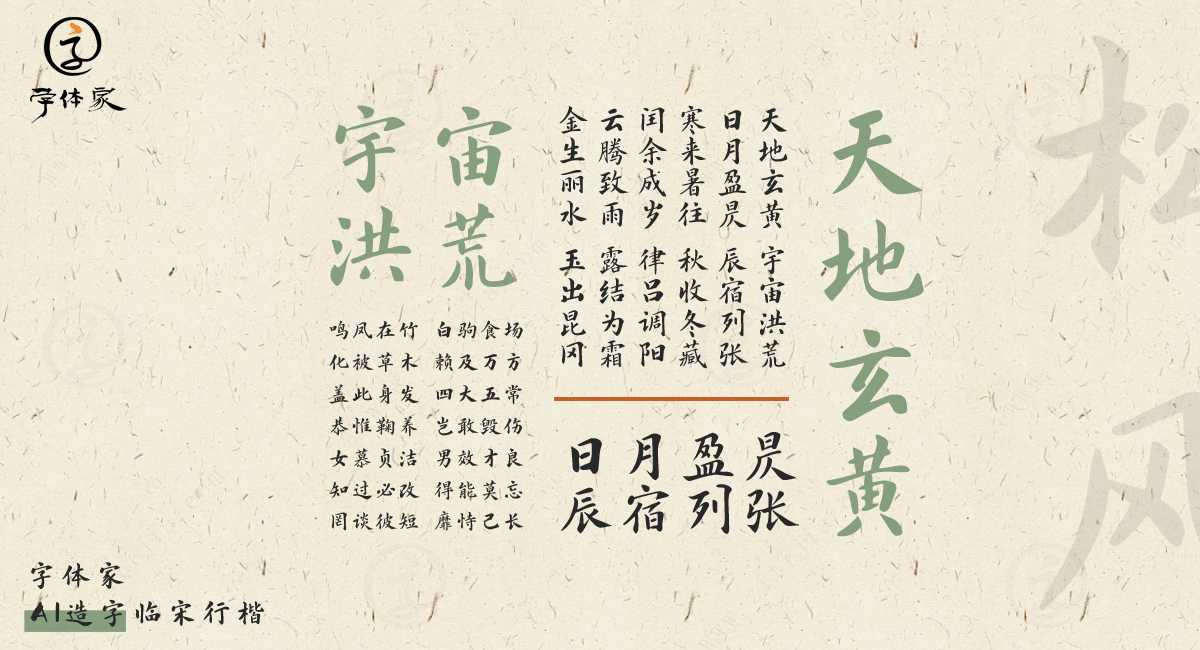 字
字体家
松风
天地玄黄
天地玄黄 宇宙洪荒
日月盈昃 辰宿列张
寒来暑往 秋收冬藏
闰余成岁 律吕调阳
云腾致雨 露结为霜
金生丽水 玉出昆冈
日月盈昃
辰宿列张
宇宙
洪荒
鸣凤在竹 白驹食场
化被草木 赖及万方
盖此身发 四大五常
恭惟鞠养 岂敢毁伤
女慕贞洁 男效才良
知过必改 得能莫忘
罔谈彼短 靡恃己长
字体家
AI造字临宋行楷